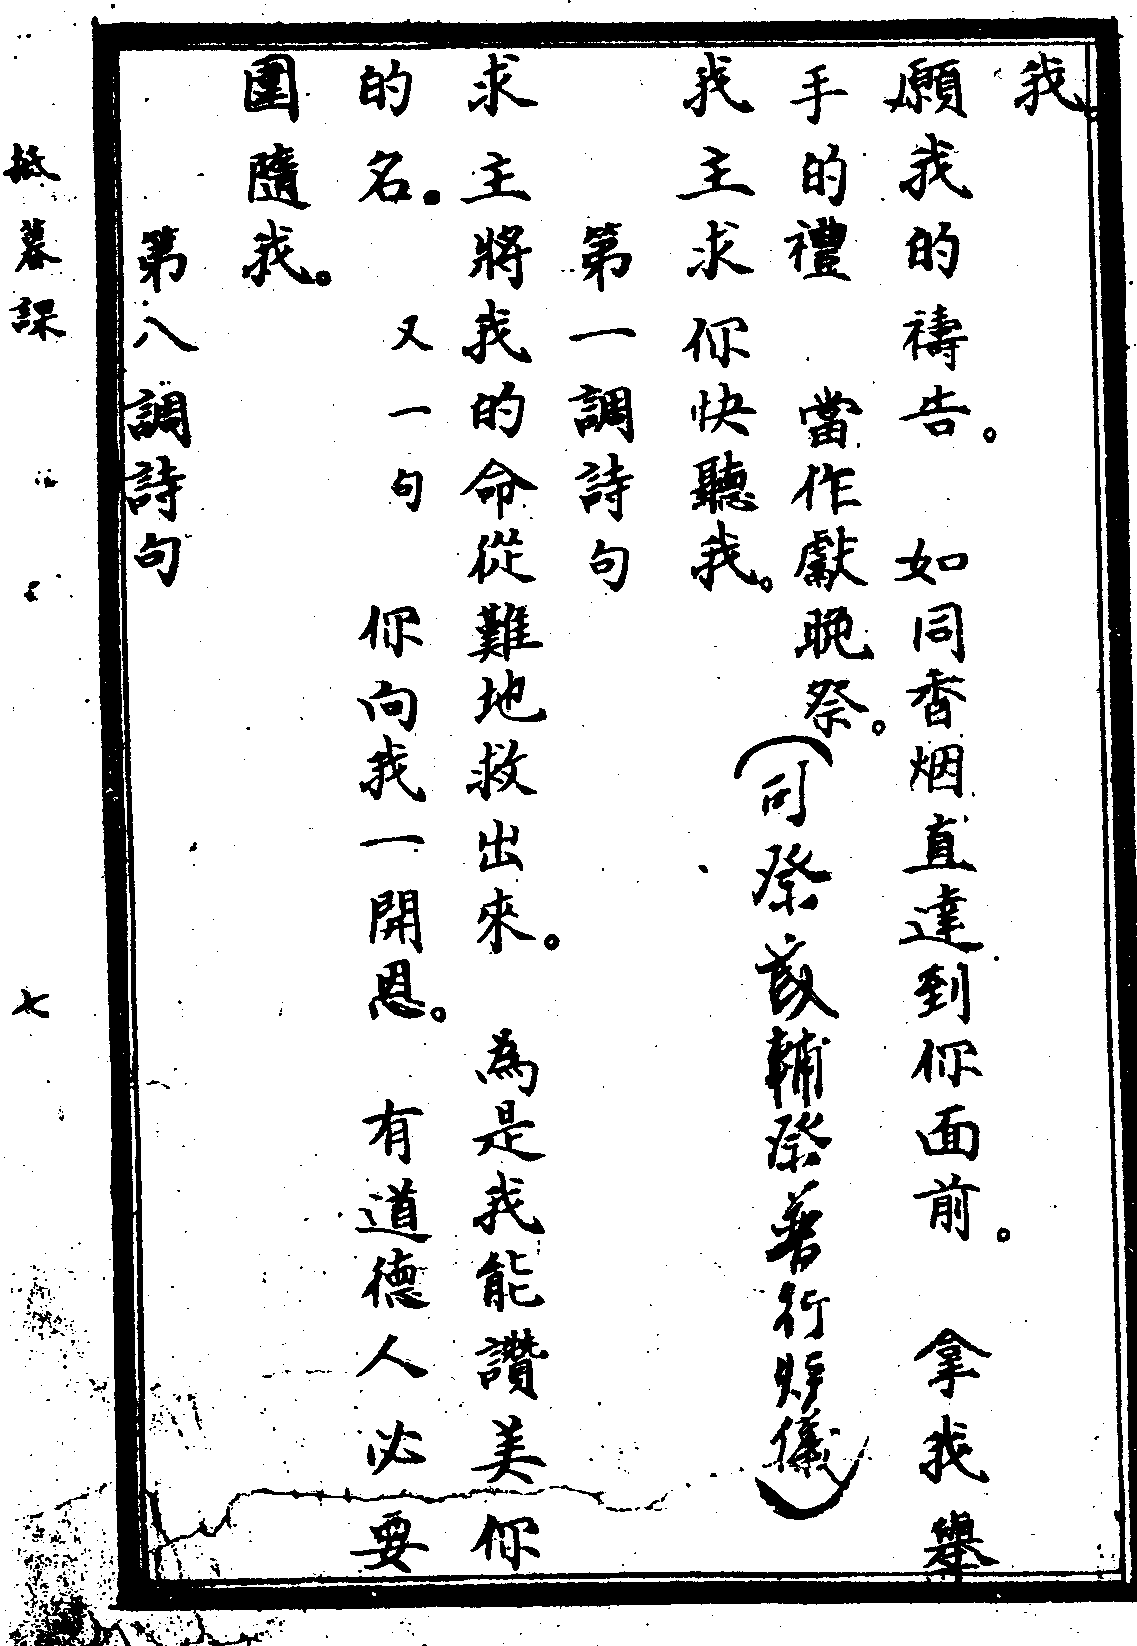 我。
願我的禱告。　如同香烟直達到你面前。　拿我舉
手的禮　當作獻晚祭。（司祭或輔祭普行炉儀）
我主求你快聽我。
第一調詩句
求主將我的命從難地救出來。　為是我能讚美你
的名。　又一句　你向我一開恩。　有道德人必要
圍隨我。
第八調詩句
抵暮課
七